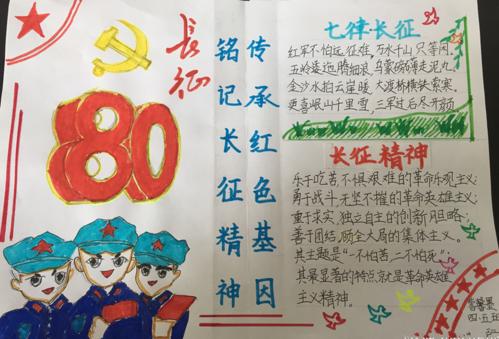 长征
80
铭记长征精神
传承红色基因
七律长征
红军不怕远征难，万水千山只等闲，
五岭逶迤腾细浪，乌蒙磅礴走泥丸，
金沙水拍云崖暖，大渡桥横铁索寒，
更喜岷山千里雪，三军过后尽开颜
长征精神
乐于吃苦，不惧艰难的革命乐观主义；
勇于战斗，无坚不摧的革命英雄主义；
重于求实，独立自主的创新胆略；
善于团结，顾全大局的集体主义。
其主题是“一不怕苦，二不怕死”；
其最显著的特点就是革命英雄
主义精神。
四.五